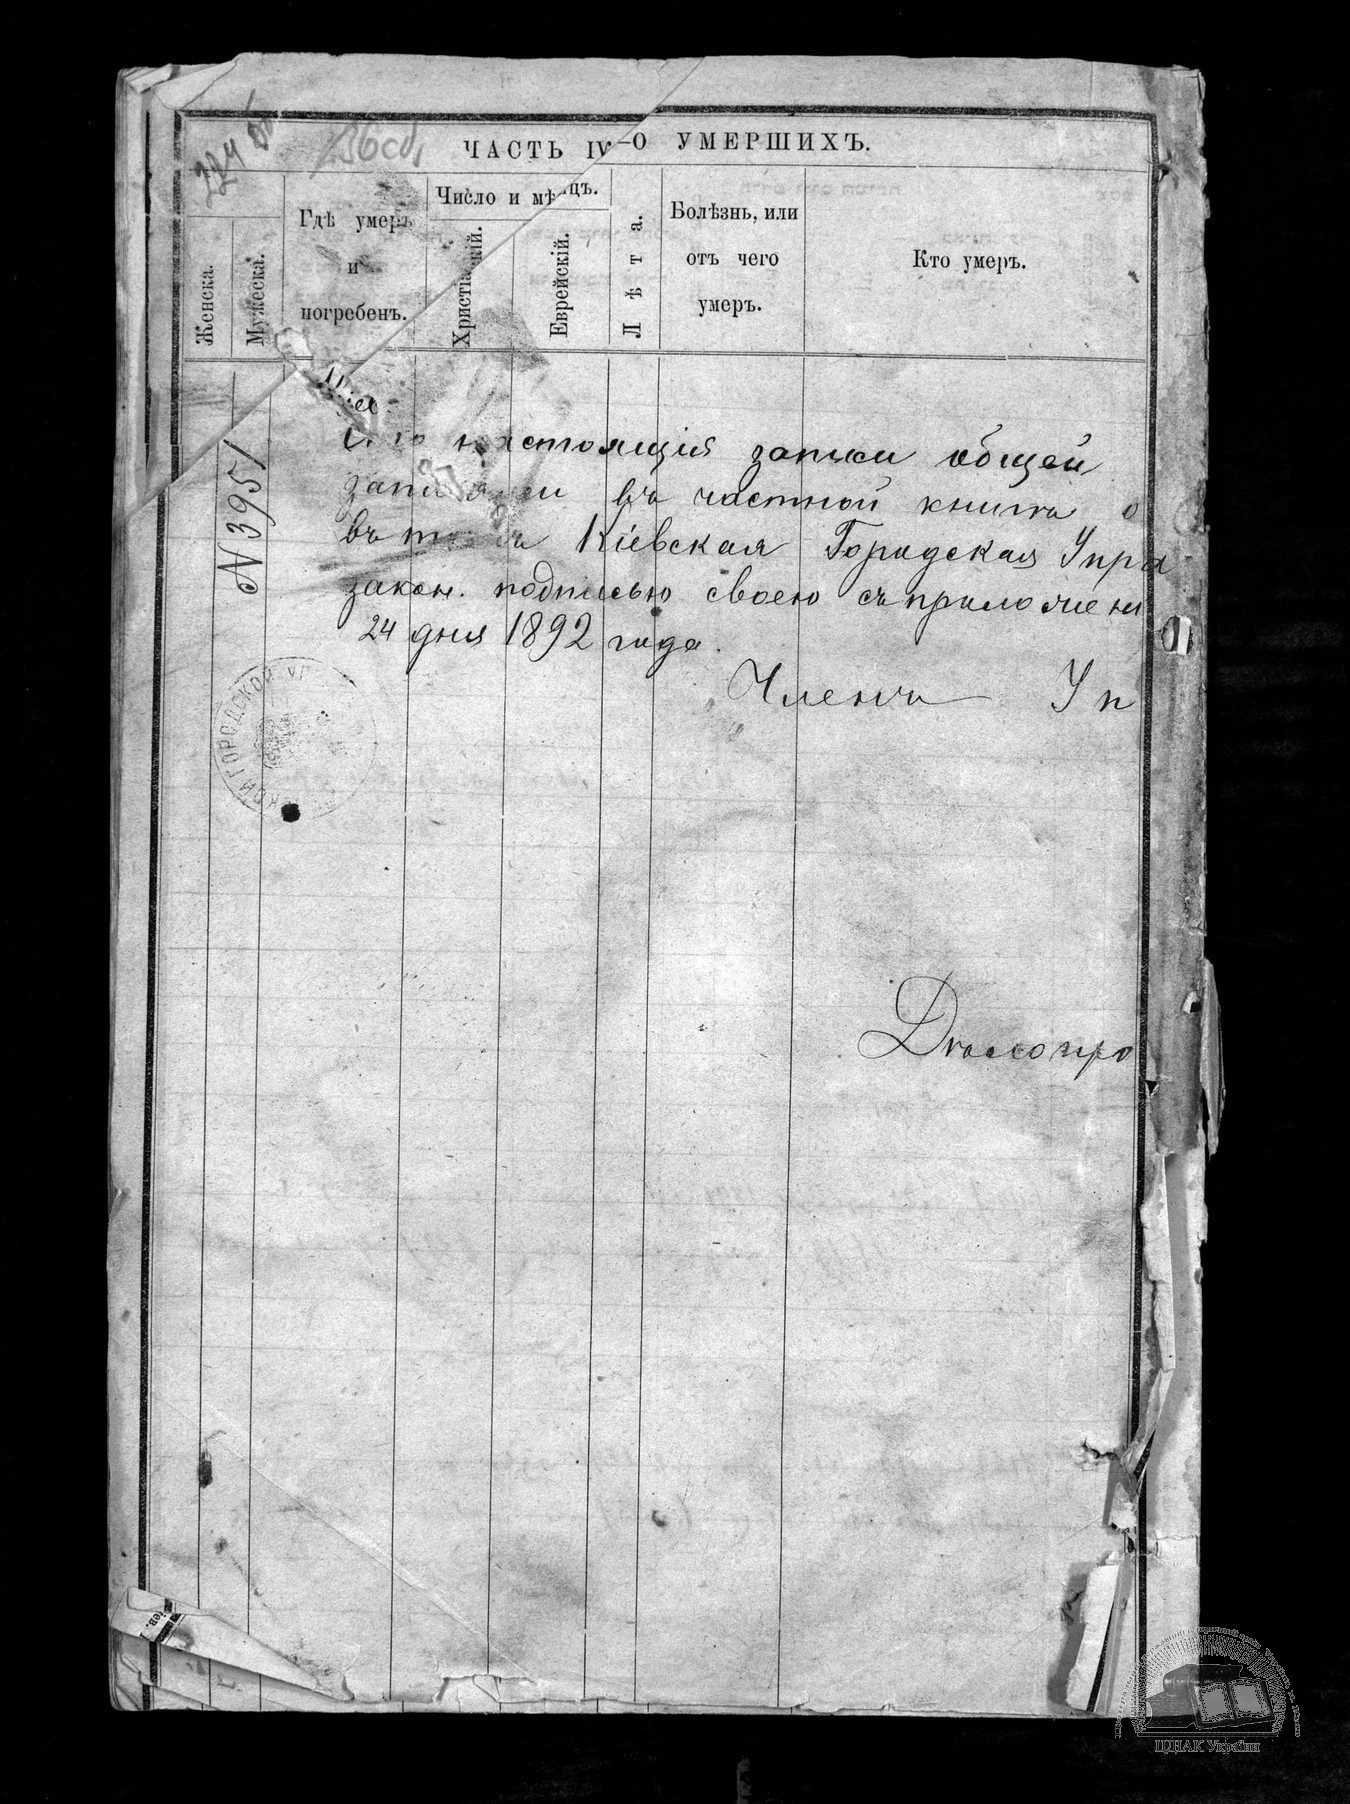 ЧАСТЬ IV–О УМЕРШИХЪ.
Женска.
Мужеска.
Гдѣ умеръ
и
погребенъ.
Число и мѣ яцъ.
Христіа скій.
Еврейскій.
Лѣта.
Болѣзнь, или
отъ чего
умеръ.
Кто умеръ.
N 3951
настоящія записи общей
въ частной книгѣ о
Кіевская Городская Упра
закон. подписью своею съ приложени
24 дня 1892 года.
Члень Уп
ГОРОДСКОЙ
Дѣлопро
ЦДІАК України